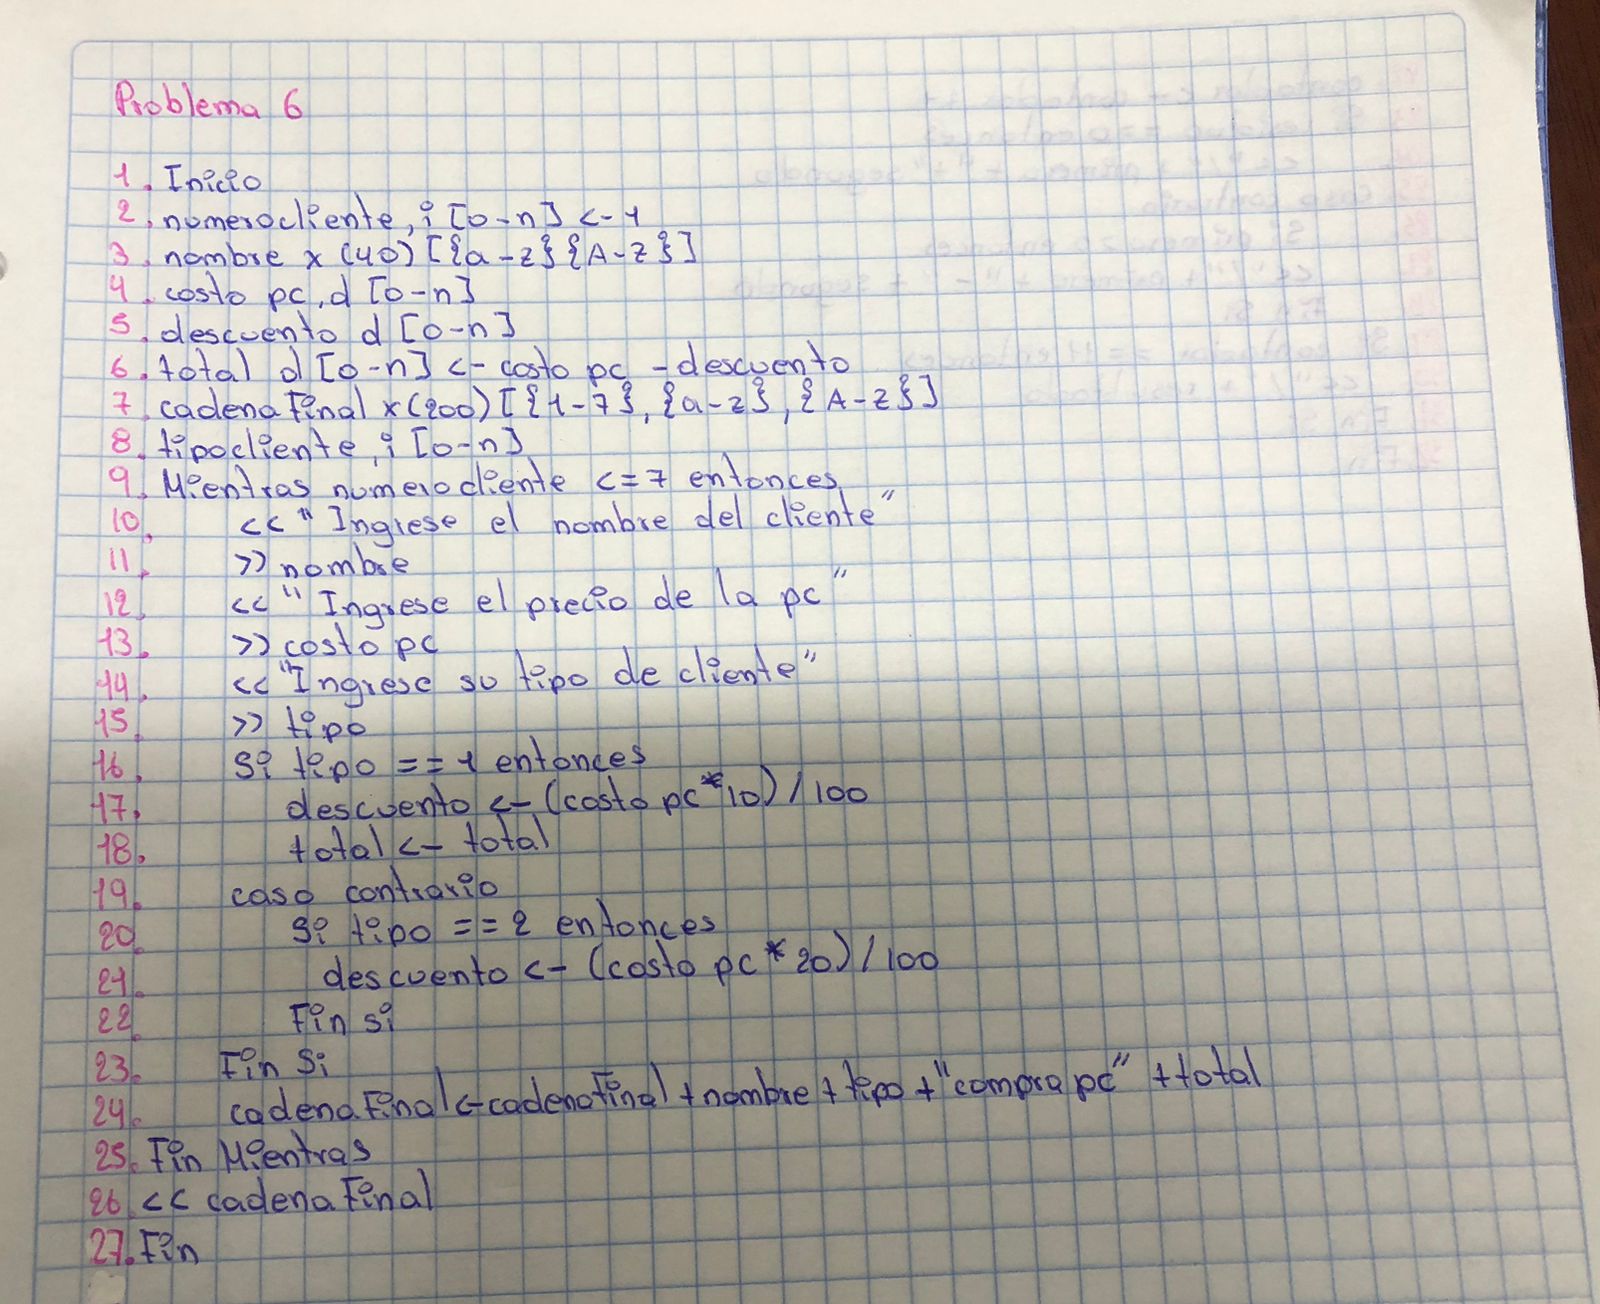 Problema 6
1. Inicio
2. numerocliente, i [0-n] <- 1
3. nombre x (40) [{a-z}{A-Z}]
4. costo pc, d [0-n]
5. descuento d [0-n]
6. total d [0-n] <- costo pc - descuento
7. cadena Final x(200) [{1-7}, {a-z}, {A-Z}]
8. tipocliente, i [0-n]
9. Mientras numerocliente <= 7 entonces
10. << "Ingrese el nombre del cliente"
11. >> nombre
12. << "Ingrese el precio de la pc"
13. >> costo pc
14. << "Ingrese su tipo de cliente"
15. >> tipo
16. Si tipo == 1 entonces
17. descuento <- (costo pc * 10) / 100
18. total <- total
19. caso contrario
20. Si tipo == 2 entonces
21. descuento <- (costo pc * 20) / 100
22. Fin si
23. Fin Si
24. cadena Final <- cadena Final + nombre + tipo + "compra pc" + total
25. Fin Mientras
26. << cadena Final
27. Fin